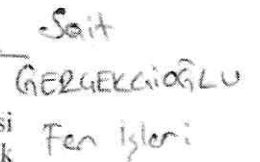 Sait
GERGEKCİOĞLU
Fen işleri